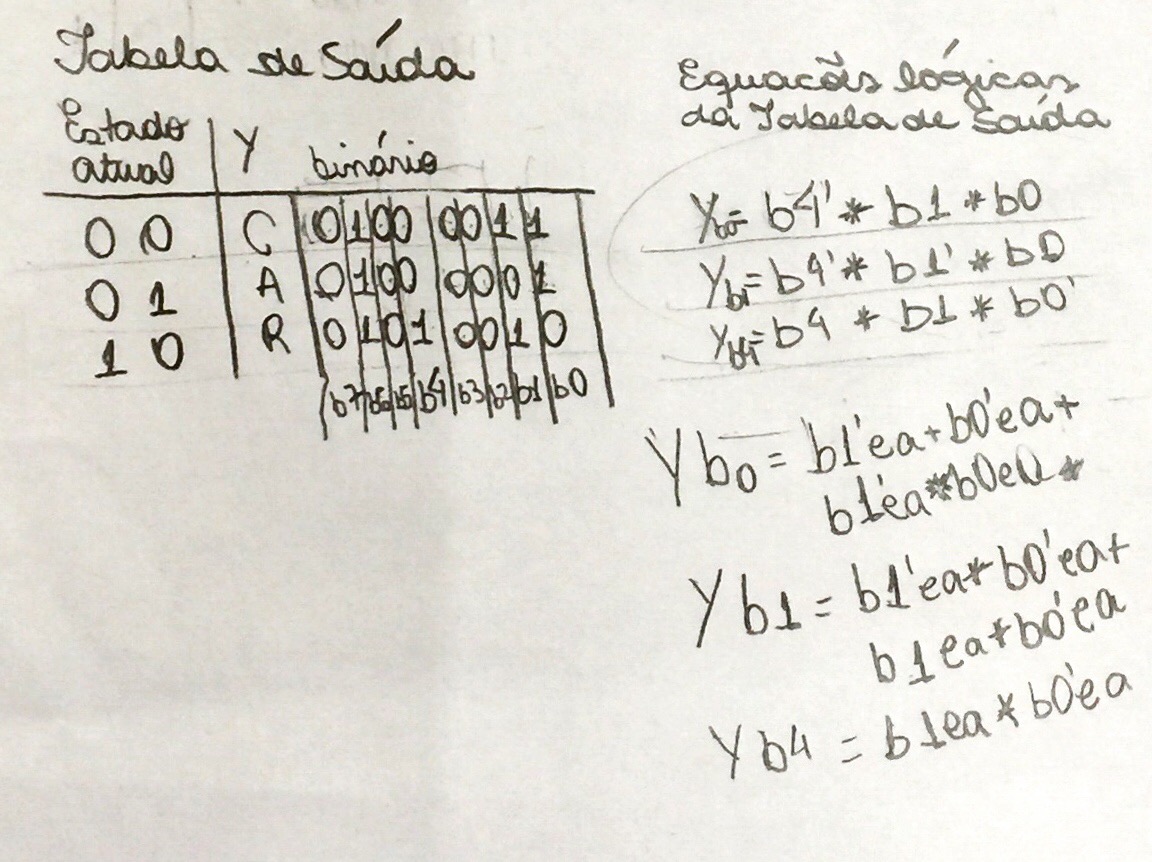 Tabela de Saída
Estado atual | Y | binário
0 0 | C | 0 1 0 0 0 0 1 1
0 1 | A | 0 1 0 0 0 0 0 1
1 0 | R | 0 1 0 1 0 0 1 0
b7 b6 b5 b4 b3 b2 b1 b0
Equacões lógicas
da Tabela de Saída
Yb0= b4' * b1 * b0
Yb1= b4' * b1' * b0
Yb4= b4 * b1 * b0'
Yb0 = b1'ea + b0'ea +
b1'ea * b0ea *
Yb1 = b1'ea * b0'ea +
b1ea * b0'ea
Yb4 = b1ea * b0'ea